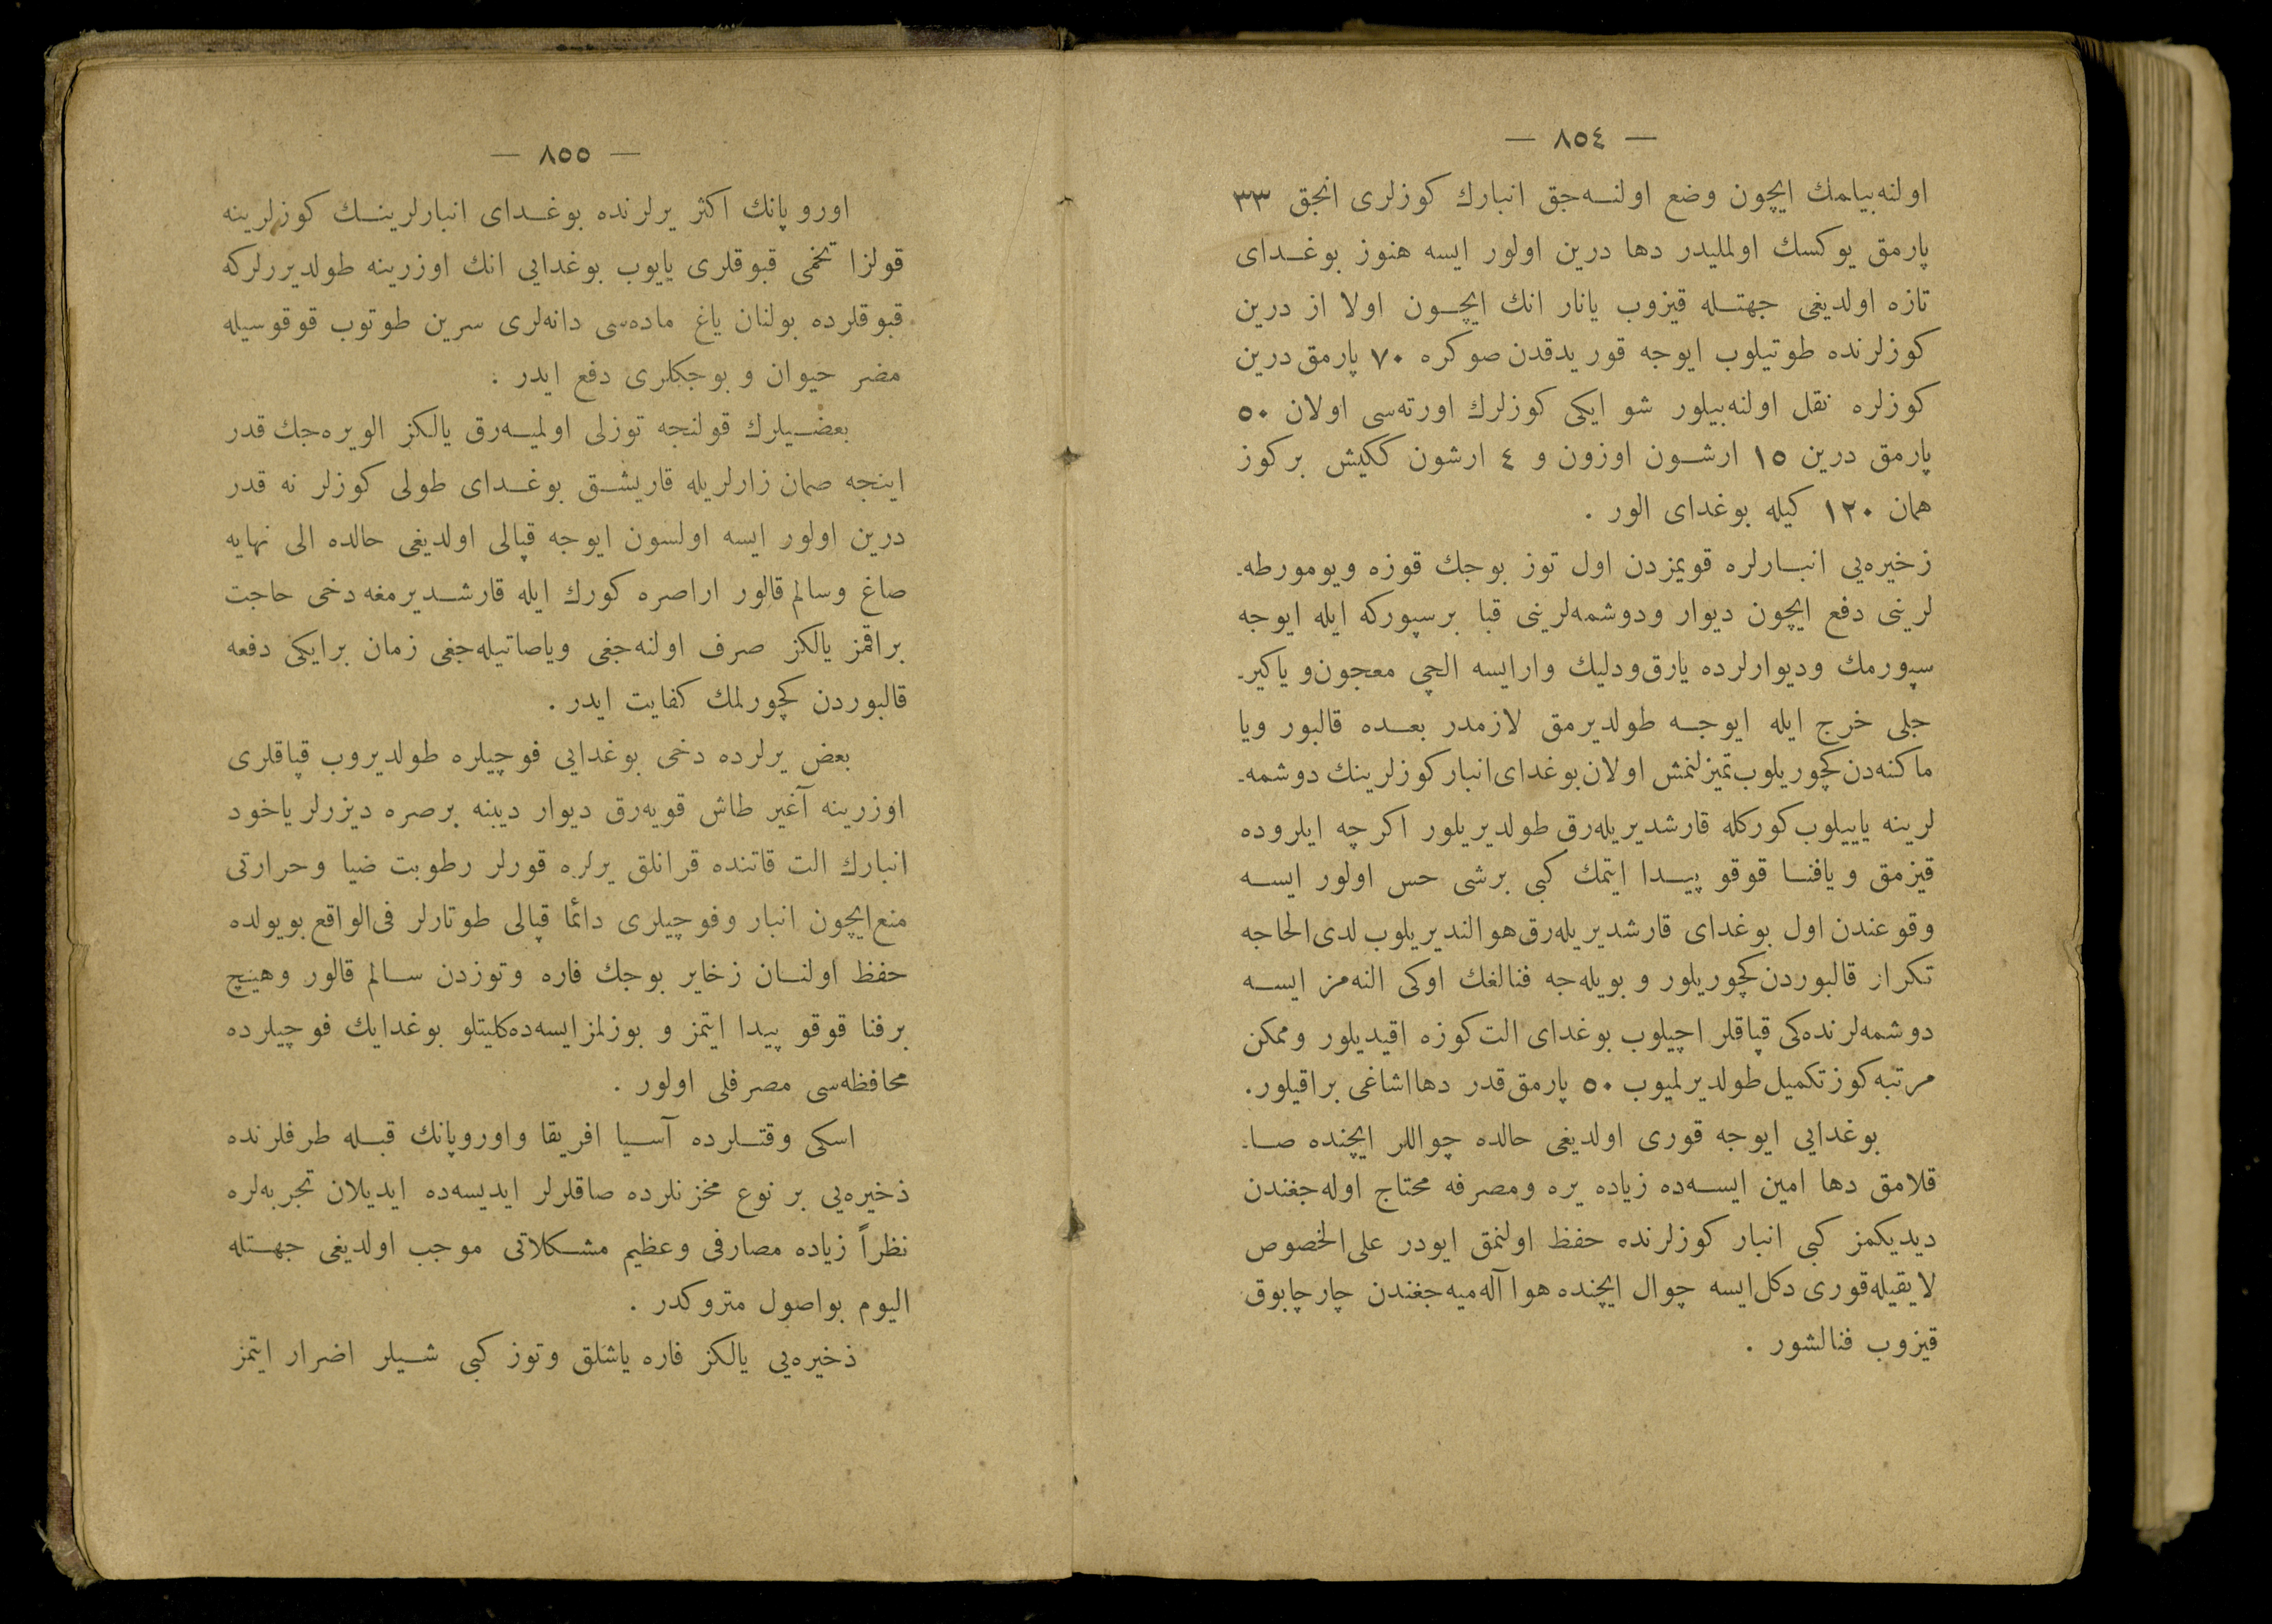 — ٨٥٤ —
اولنه‌بيلمك ايچون وضع اولنــه‌جق انبارك كوزلری انجق ٣٣
پارمق يوكسك اولمليدر دها درين اولور ايسه هنوز بوغــدای
تازه اولديغی جهتــله قيزوب يانار انك ايچــون اولا از درين
كوزلرنده طوتيلوب ايوجه قوريدقدن صوكره ٧٠ پارمق درين
كوزلره نقل اولنه‌بيلور شو ايكی كوزلرك اورته‌سی اولان ٥٠
پارمق درين ١٥ ارشــون اوزون و ٤ ارشون ككيش بركوز
همان ١٢٠ كيله بوغدای الور .
زخيره‌يی انبــارلره قويمزدن اول توز بوجك قوزه ويومورطه‌ـ
لرينی دفع ايچون ديوار ودوشمه‌لرينی قبا برسپوركه ايله ايوجه
سپورمك وديوارلرده يارق‌ودليك وارايسه الچی معجون‌و ياكير‌ـ
جلی خرج ايله ايوجــه طولديرمق لازمدر بعــده قالبور ويا
ماكنه‌دن كچوريلوب تميزلنمش اولان بوغدای انبار كوزلرينك دوشمه‌ـ
لرينه ياييلوب كوركله قارشديريله‌رق طولديريلور اكرچه ايلروده
قيزمق و يافنــا قوقو پيــدا ايتمك كبی برشی حس اولور ايســه
وقوعندن اول بوغدای قارشديريله‌رق هوالنديريلوب لدی‌الحاجه
تكرار قالبوردن كچوريلور و بويله‌جه فنالغك اوكی النه‌مز ايســه
دوشمه‌لرنده‌كی قپاقلر اچيلوب بوغدای الت كوزه اقيديلور وممكن
مرتبه كوز تكميل طولديرلميوب ٥٠ پارمق قدر دها اشاغی براقيلور.
بوغدايی ايوجه قوری اولديغی حالده چواللر ايچنده صــا‌ـ
قلامق دها امين ايســه‌ده زياده يره ومصرفه محتاج اوله‌جغندن
ديديكمز كبی انبار كوزلرنده حفظ اولنمق ايودر علی‌الخصوص
لايقيله قوری دكل ايسه چوال ايچنده هوا آله‌ميه‌جغندن چارچابوق
قيزوب فنالشور .
— ٨٥٥ —
اوروپانك اكثر يرلرنده بوغــدای انبارلرينــك كوزلرينه
قولزا تخمی قبوقلری يايوب بوغدايی انك اوزرينه طولديررلركه
قبوقلرده بولنان ياغ ماده‌سی دانه‌لری سرين طوتوب قوقوسيله
مضر حيوان و بوجكلری دفع ايدر .
بعضــيلرك قولنجه توزلی اولميــه‌رق يالكز الويره‌جك قدر
اينجه صمان زارلريله قاريشــق بوغــدای طولی كوزلر نه قدر
درين اولور ايسه اولسون ايوجه قپالی اولديغی حالده الی نهايه
صاغ وسالم قالور اراصره كورك ايله قارشــديرمغه دخی حاجت
براقمز يالكز صرف اولنه‌جغی وياصاتيله‌جغی زمان برايكی دفعه
قالبوردن كچورلمك كفايت ايدر .
بعض يرلرده دخی بوغدايی فوچيلره طولديروب قپاقلری
اوزرينه آغير طاش قويه‌رق ديوار ديبنه برصره ديزرلر ياخود
انبارك الت قاتنده قرانلق يرلره قورلر رطوبت ضيا وحرارتی
منع ايچون انبار وفوچيلری دائما قپالی طوتارلر فی‌الواقع بويولده
حفظ اولنــان زخاير بوجك فاره وتوزدن ســالم قالور وهيچ
برفنا قوقو پيدا ايتمز و بوزلمز ايسه‌ده كليتلو بوغدايك فوچيلرده
محافظه‌سی مصرفلی اولور .
اسكی وقتــلرده آســيا افريقا واوروپانك قبــله طرفلرنده
ذخيره‌يی بر نوع مخزنلرده صاقلرلر ايديسه‌ده ايديلان تجربه‌لره
نظراً زياده مصارفی وعظيم مشــكلاتی موجب اولديغی جهــتله
اليوم بواصول متروكدر .
ذخيره‌يی يالكز فاره ياشلق وتوز كبی شــيلر اضرار ايتمز